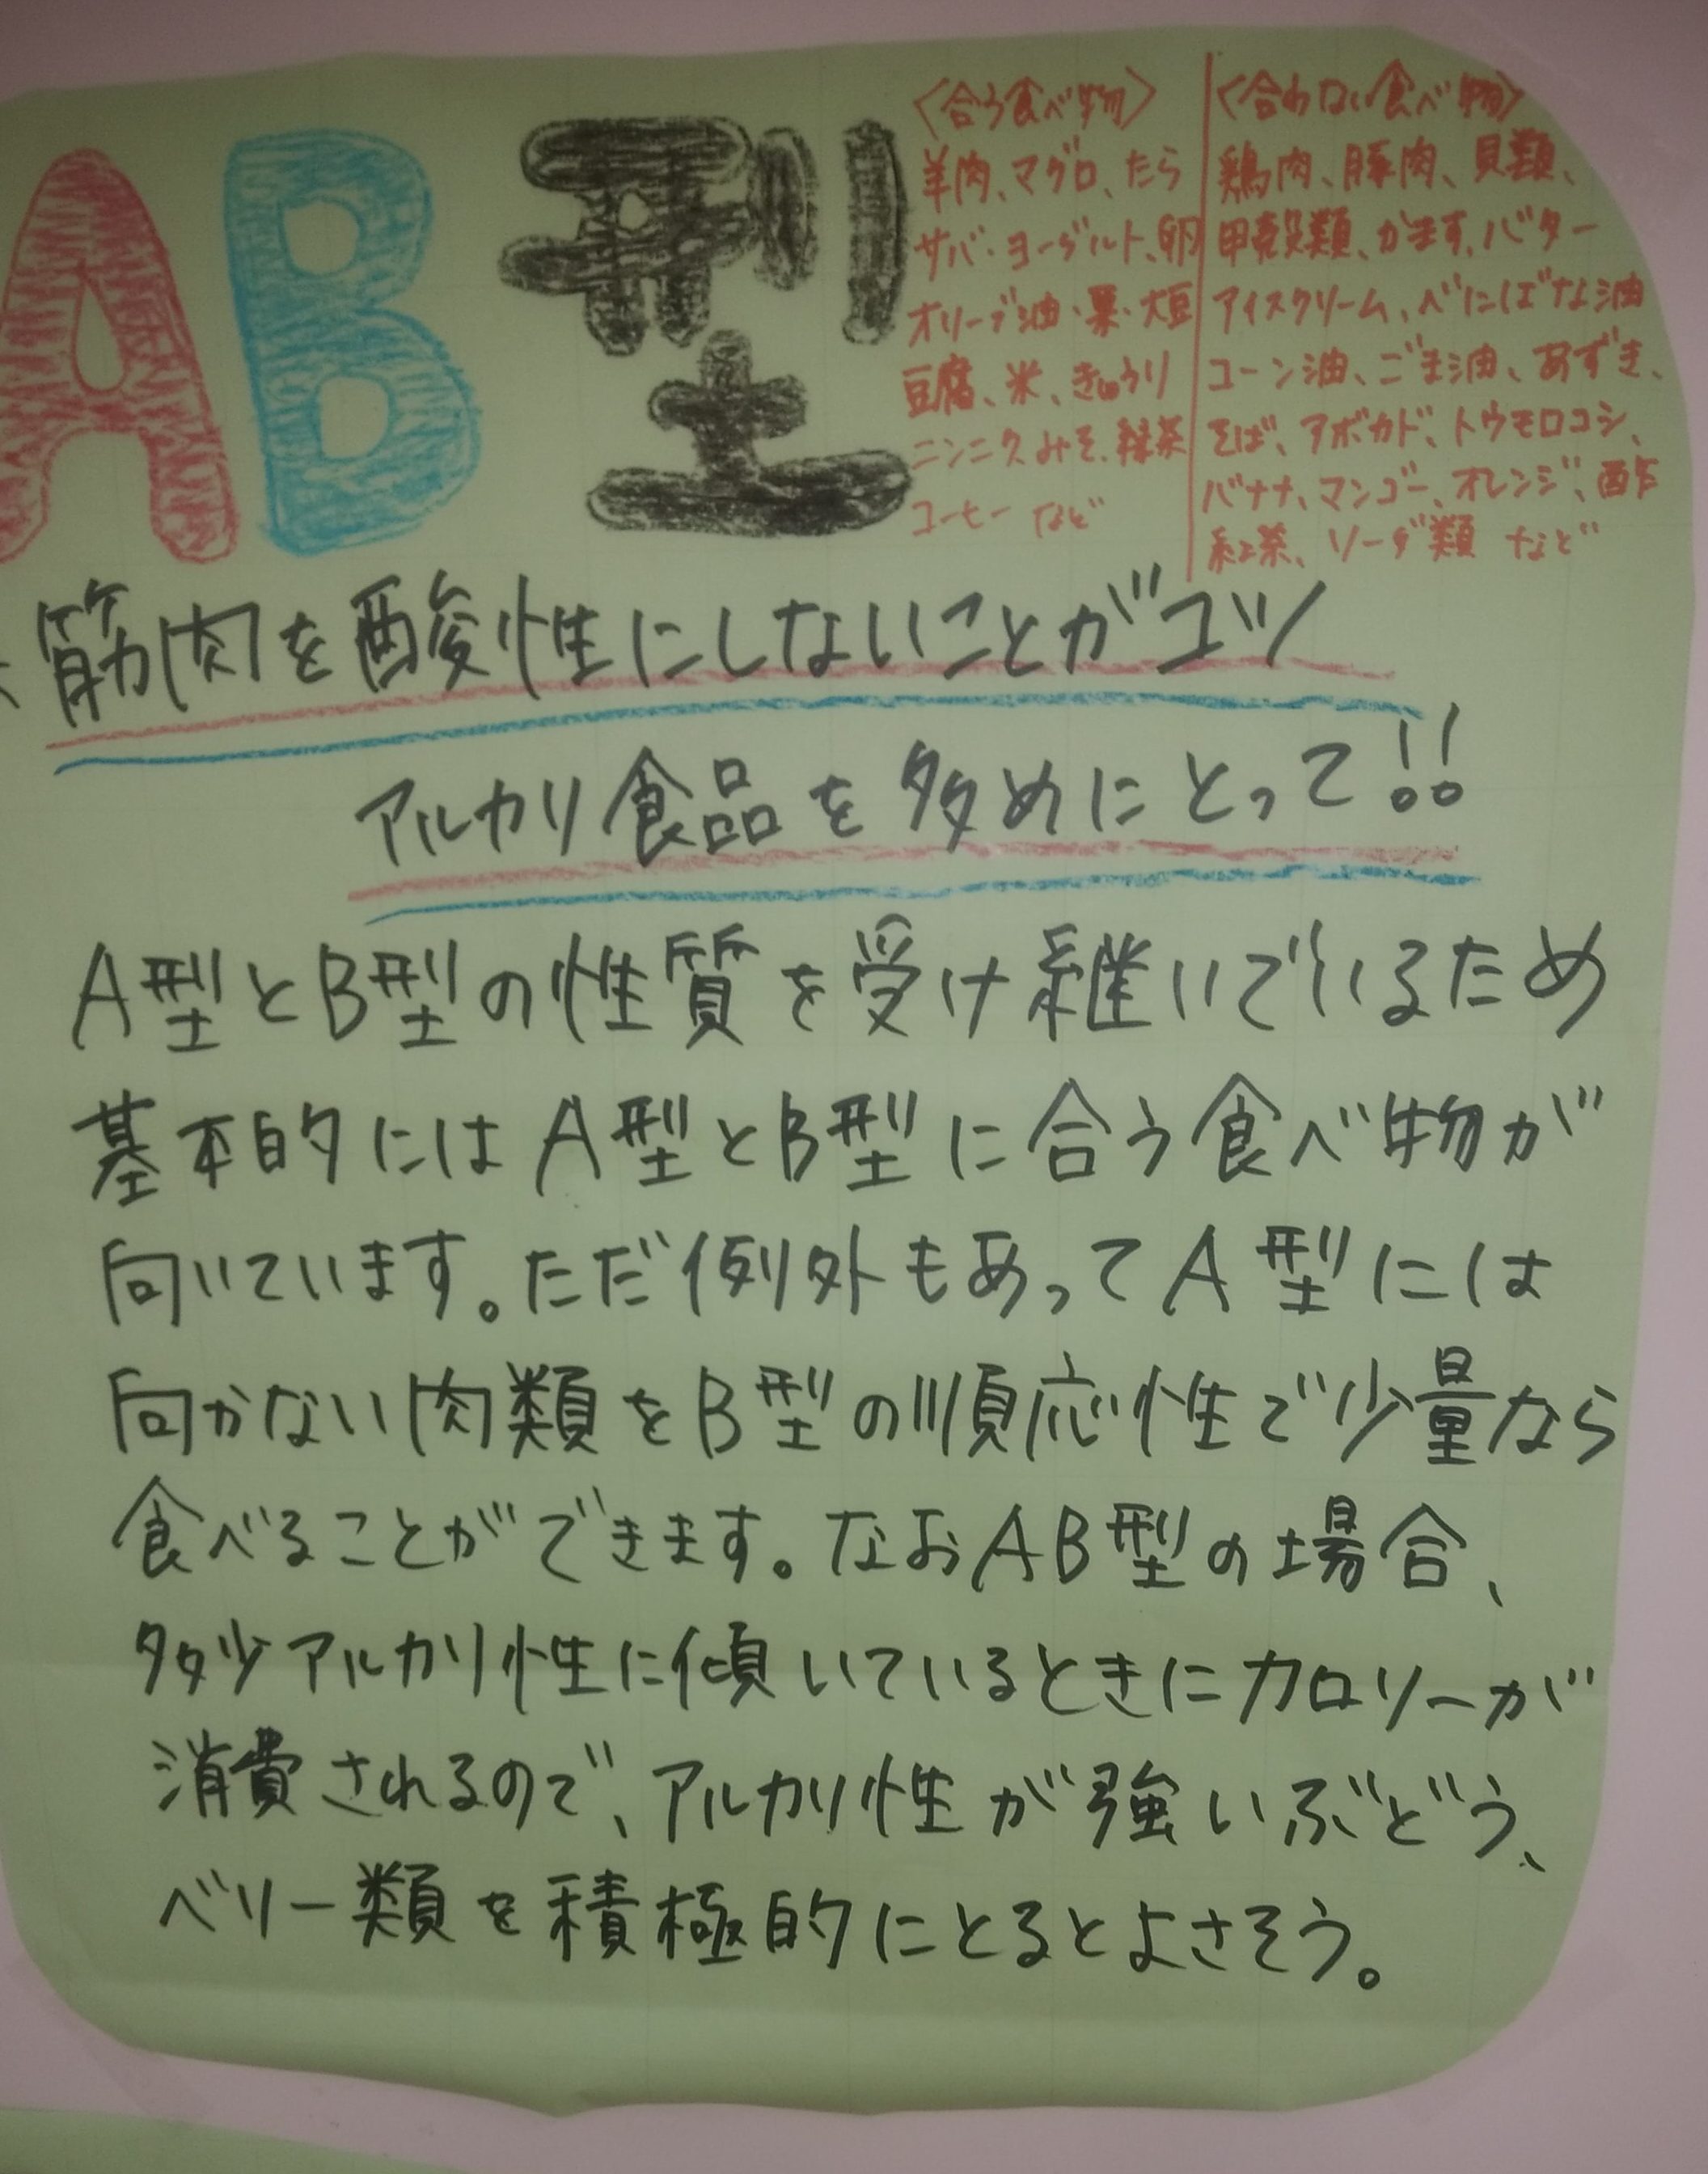 AB型
〈合う食べ物〉
羊肉、マグロ、たら
サバ・ヨーグルト、卵
オリーブ油・栗・大豆
豆腐、米、きゅうり
ニンニクみそ、緑茶
コーヒー など
〈合わない食べ物〉
鶏肉、豚肉、貝類、
甲殻類、かます、バター
アイスクリーム、べにばな油
コーン油、ごま油、あずき、
そば、アボカド、トウモロコシ、
バナナ、マンゴー、オレンジ、酢
紅茶、ソーダ類 など
筋肉を酸性にしないことがコツ
アルカリ食品を多めにとって!!
A型とB型の性質を受け継いでいるため
基本的にはA型とB型に合う食べ物が
向いています。ただ例外もあってA型には
向かない肉類をB型の順応性で少量なら
食べることができます。なおAB型の場合、
多少アルカリ性に傾いているときにカロリーが
消費されるので、アルカリ性が強いぶどう、
ベリー類を積極的にとるとよさそう。